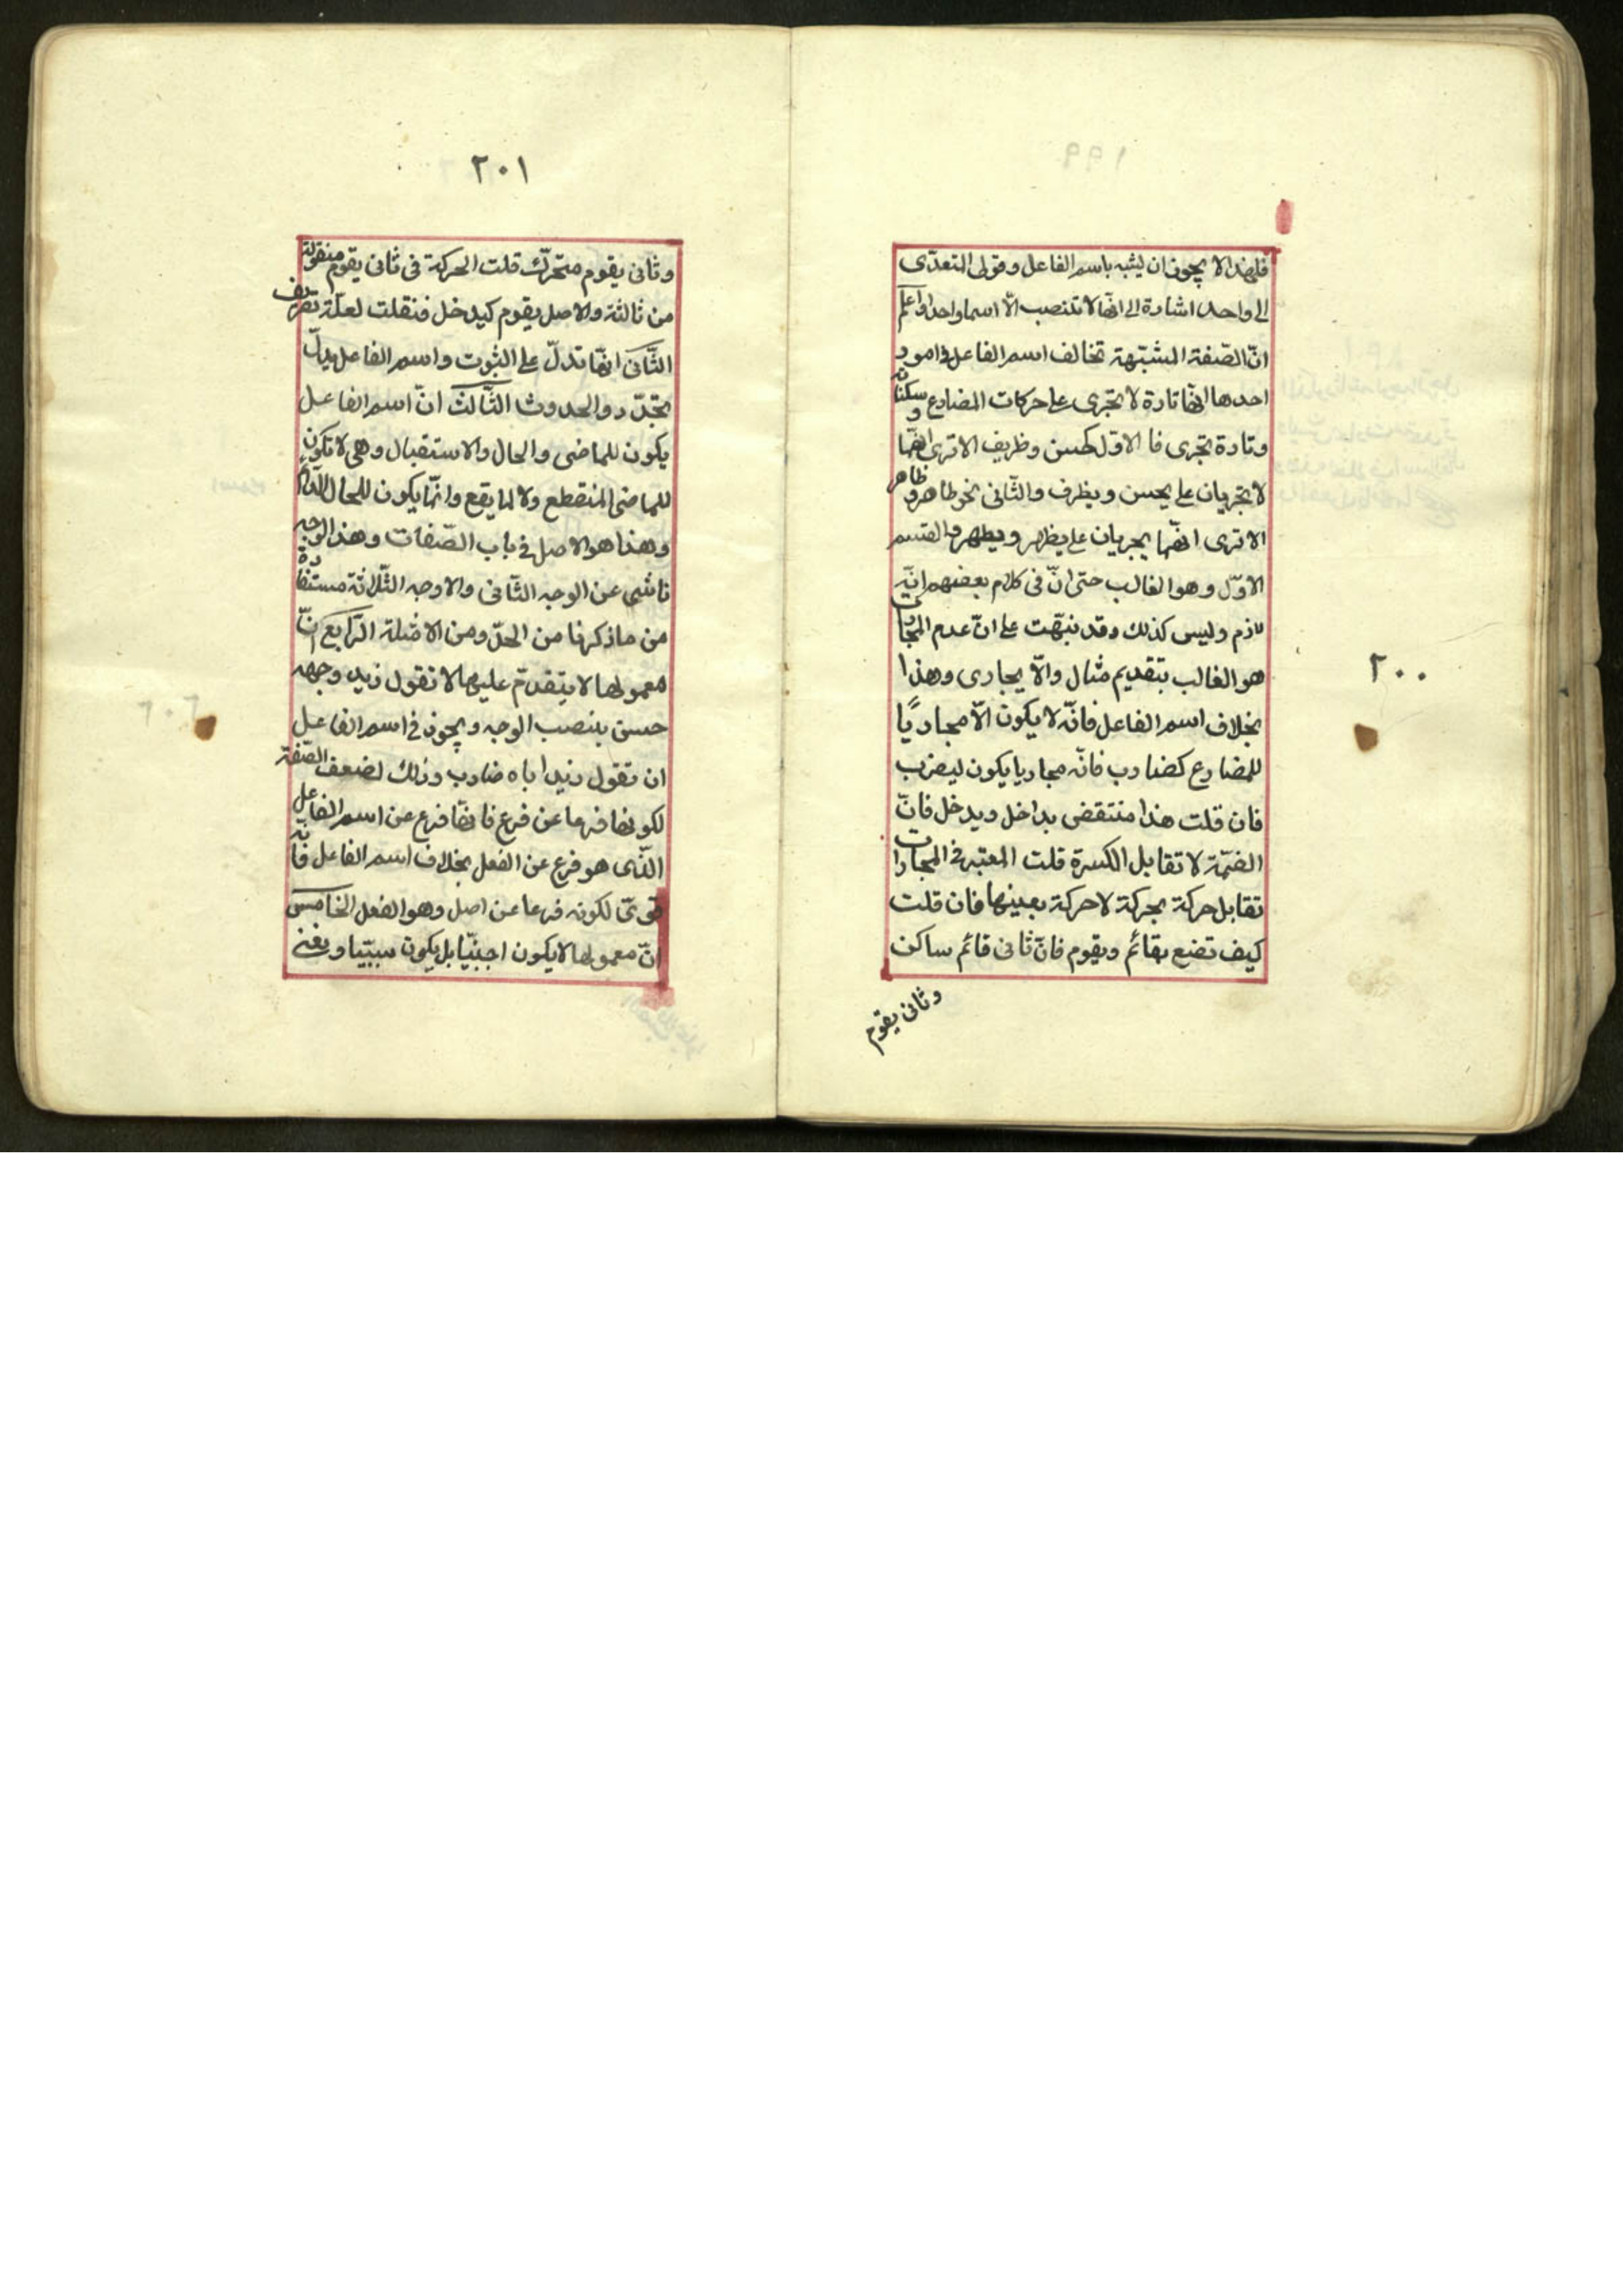 فلهذا لا يجوز ان يشبه باسم الفاعل وقولى المتعدّى
الى واحد اشارة الى انّها لا تنصب الّا اسما واحدا واعلم
انّ الصّفة المشبّهة تخالف اسم الفاعل فى امور
احدها انّها تارة لا تجرى على حركات المضارع و سكناته
وتارة تجرى فا الاوّل كحسن وظريف الا ترى انّهما
لا تجريان على يحسن ويظرف والثّانى نحو طاهر و ظاهر
الا ترى انّهما يجريان على يظهر ويطهر والقسم
الاوّل وهو الغالب حتى انّ فى كلام بعضهم انّه
لازم وليس كذلك وقد نبّهت على انّ عدم المجارات
هو الغالب بتقديم مثال والّا يجارى وهذا
بخلاف اسم الفاعل فانّه لا يكون الّا مجاريًا
للمضارع كضارب فانّه مجاريا يكون ليضرب
فان قلت هذا منتقض بداخل ويدخل فانّ
الضّمّة لا تقابل الكسرة قلت المعتبر فى المجارات
تقابل حركة بحركة لا حركة بعينها فان قلت
كيف تضع بقائم ويقوم فانّ ثانى قائم ساكن
وثانى يقوم
٢٠٠
٢٠١
وثانى يقوم متحرّك قلت الحركة فى ثانى يقوم منقولة
من ثالثة والاصل يقوم كيدخل فنقلت لعلّة تصريف
الثّانى انّها تدلّ على الثبوت واسم الفاعل يدلّ
تجدّد والحدوث الثّالث انّ اسم الفاعل
يكون للماضى والحال والاستقبال وهى لا تكون
للماضى المنقطع ولا لما يقع وانّما يكون للحال الدّائم
وهذا هو الاصل فى باب الصّفات وهذا الوجه
ناشى عن الوجه الثّانى والاوجه الثّلاثة مستفادة
من ما ذكرنا من الحدّ ومن الامثلة الرّابع انّ
معمولها لا يتقدّم عليها لا تقول زيد وجهه
حسن بنصب الوجه ويجوز فى اسم الفاعل
ان تقول زيد اباه ضارب وذلك لضعف الصّفة
لكونها فرعا عن فرع فانّها فرع عن اسم الفاعل
الّذى هو فرع عن الفعل بخلاف اسم الفاعل فانّه
قوىّ لكونه فرعا عن اصل وهو الفعل الخامس
انّ معمولها لا يكون اجنبيّا بل يكون سببيّا ونعنى